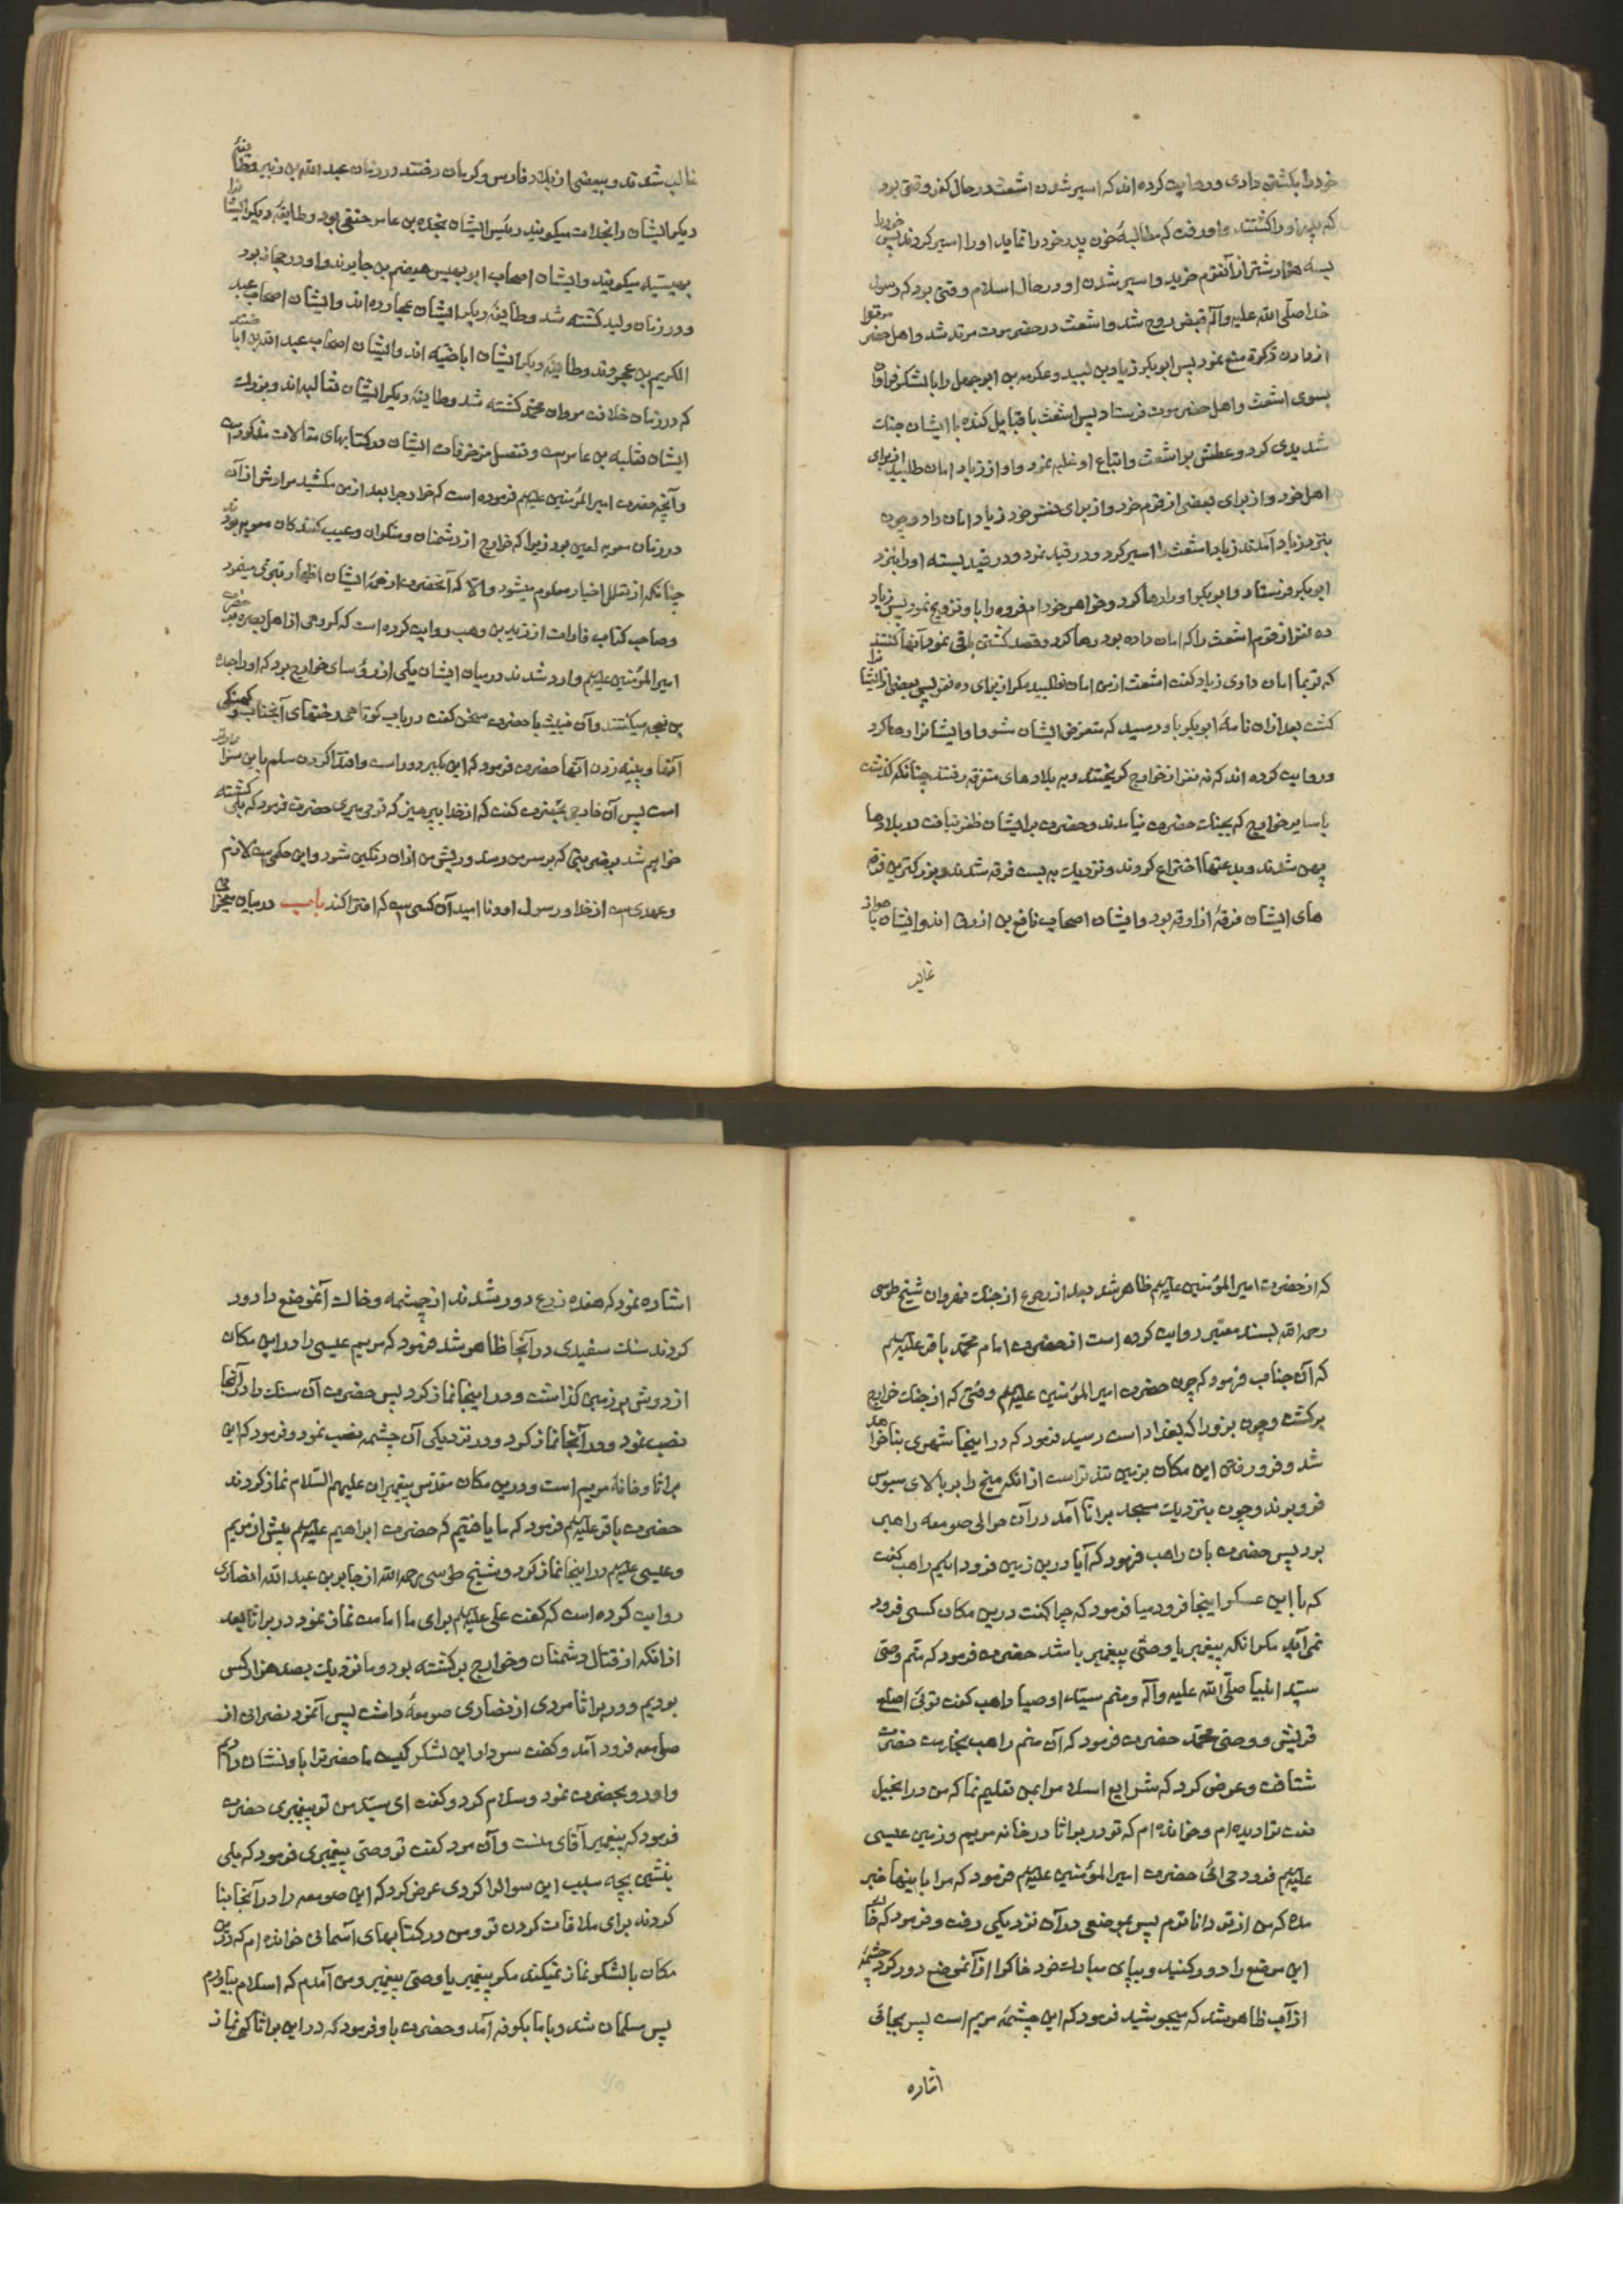 خود را بکشتن دادی و روایت کرده اند که اسیر شدن اشعث در حال کفر وقتی بود
که پدر او را کشتند و او رفت که مطالبهٔ خون پدر خود را نماید او را اسیر کردند پس خود را
بسه هزار شتر از آنقوم خرید و اسیر شدن او در حال اسلام وقتی بود که رسول
خدا صلّی الله علیه وآله قبض روح شد و اشعث در حضرموت مرتد شد و اهل حضرموت را
از دادن زکوة منع نمود پس ابوبکر زیاد بن لبید و عکرمه بن ابوجهل را با لشکر فراوان
بسوی اشعث و اهل حضرموت فرستاد پس اشعث با قبایل کنده با ایشان جنک
شدیدی کرد و عطش بر اشعث و اتباع او غلبه نمود و او از زیاد امان طلبید از برای
اهل خود و از برای بعضی از قوم خود و از برای نفس خود زیاد امان داد و چون
بنزد زیاد آمدند زیاد اشعث را اسیر کرد و در قید نمود و در قید بسته او را بنزد
ابوبکر فرستاد و ابوبکر او را رها کرد و خواهر خود ام فروه را باو تزویج نمود پس زیاد
ده نفر از قوم اشعث را که امان داده بود رها کرد و قصد کشتن باقی نمود آنها گفتند
که تو بما امان دادی زیاد کفت اشعث از من امان نطلبید مکر از برای ده نفر پس بعضی از ایشانرا
کشت بعد ازان نامهٔ ابوبکر باو رسید که متعرض ایشان مشو و او ایشانرا رها کرد
و روایت کرده اند که نه نفر از خوارج کریختند و به بلادهای متفرقه رفتند چنانکه کذشت
با سایر خوارج که بجنک حضرت نیامدند و حضرت بر ایشان ظفر نیافت در بلادها
پهن شدند و بدعتها اختراع کردند و نزدیک به بیست فرقه شدند و بزرکترین فرقه
های ایشان فرقهٔ ازارقه بود و ایشان اصحاب نافع بن ازرق اند و ایشان با هواز
غالب
غالب شدند و ببعضی از بلاد فارس و کرمان رفتند در زمان عبد الله بن زبیر و طایفهٔ
دیکر ایشان را نجدات میکویند رئیس ایشان نجده بن عامر حنفی بود و طایفهٔ دیکر ایشانرا
بهیسیه میکویند و ایشان اصحاب ابو بهیس هیصم بن جابرند و او در حجاز بود
و در زمان ولید کشته شد و طایفهٔ دیکر ایشان عجارده اند و ایشان اصحاب عبد
الکریم بن عجردند و طایفهٔ دیکر ایشان اباضیه اند و ایشان اصحاب عبد الله بن اباضند
که در زمان خلافت مروان محمد کشته شد و طایفهٔ دیکر ایشان ثعالبه اند و بزرک
ایشان ثعلبه بن عامرست و تفصیل مزخرفات ایشان در کتابهای مقالات مذکور است
و آنچه حضرت امیر المؤمنین علیه‌م فرموده است که خوارج را بعد از من مکشید مرادش از آن
در زمان معویه لعین بود زیرا که خوارج از دشمنان و منکران و عیب کنندکان معویه بودند
چنانکه از نقل اخبار معلوم میشود والا که آنحضرت از همهٔ ایشان اظهار تبری میفرمود
و صاحب کتاب غارات از زید بن وهب روایت کرده است که کروهی از اهل بصره بر حضرت
امیر المؤمنین علیه‌م وارد شدند در میان ایشان یکی از رؤسای خوارج بود که او را جعده
بن نعجه میکفتند و آن خبیث با حضرت سخن کفت در باب کوتاهی رختهای آنجناب و کهنکی
آنها و پینه زدن آنها حضرت فرمود که این بکبر دور است و اقتدا کردن مسلم باین سزاوارتر
است پس آن خارجی بحضرت کفت که از خدا بپرهیز که تو می میری حضرت فرمود که بلکه کشته
خواهم شد بضربتی که بر سر من رسد و ریش من ازان رنکین شود و این حکمی ست لازم
و عهدی ست از خدا و رسول او و نا امید آن کسی ست که افترا کند باب در بیان معجزاتی
که از حضرت امیر المؤمنین علیه‌م ظاهر شد بعد از رجوع از جنک نهروان شیخ طوسی
رحمه الله بسند معتبر روایت کرده است از حضرت امام محمّد باقر علیه‌م
که آن جناب فرمود که چون حضرت امیر المؤمنین علیه‌م وقتی که از جنک خوارج
برکشت و چون بزورا که بغداد است رسید فرمود که در اینجا شهری بنا خواهد
شد و فرو رفتن این مکان بزمین تندتر است از انکه میخ را بر بالای سبوس
فرو برند و چون بنزدیک مسجد براثا آمد در آن حوالی صومعه راهبی
بود پس حضرت بان راهب فرمود که آیا درین زمین فرود آییم راهب کفت
که با این عسکر اینجا فرود میا فرمود که چرا کفت درین مکان کسی فرود
نمی‌آید مکر انکه پیغمبر یا وصیّ پیغمبر باشد حضرت فرمود که منم وصی
سیّد انبیا صلّی الله علیه وآله و منم سیّد اوصیا راهب کفت توئی اصلع
قریش و وصیّ محمّد حضرت فرمود که آن منم راهب بخدمت حضرت
شتافت و عرض کرد که شرایع اسلام مرا بمن تعلیم نما که من در انجیل
نعت ترا دیده ام و خوانده ام که تو در براثا در خانه مریم و زمین عیسی
علیه‌م فرود می آئی حضرت امیر المؤمنین علیه‌م فرمود که مرا باینها خبر
مده که من از تو داناترم پس بموضعی در آن نزدیکی رفت و فرمود که خاک
این موضع را دور کنید و بپای مبارک خود خاک را از آنموضع دور کرد چشمهٔ
از آب ظاهر شد که میجوشید فرمود که این چشمهٔ مریم است پس بجائی
اشاره
اشاره نمود که هفده زرع دور شدند از چشمه و خاک آنموضع را دور
کردند سنک سفیدی در آنجا ظاهر شد فرمود که مریم عیسی را در این مکان
از دوش بر زمین کذاشت و در اینجا نماز کرد پس حضرت آن سنک را در آنجا
نصب نمود و در آنجا نماز کرد و در نزدیکی آن چشمه نصب نمود و فرمود که این
براثا و خانهٔ مریم است و درین مکان مقدس پیغمبران علیهم السّلام نماز کردند
حضرت باقر علیه‌م فرمود که ما یافتیم که حضرت ابراهیم علیه‌م پیش از مریم
و عیسی علیه‌م در اینجا نماز کرد و شیخ طوسی رحمه الله از جابر بن عبد الله انصاری
روایت کرده است که کفت علی علیه‌م برای ما امامت نماز نمود در براثا بعد
از انکه از قتال دشمنان و خوارج برکشته بود و ما نزدیک بصد هزار کس
بودیم و در براثا مردی از نصاری صومعهٔ داشت پس آنمرد نصرانی از
صومعه فرود آمد و کفت سردار این لشکر کیست ما حضرت را باو نشان دادیم
و او رو بحضرت نمود و سلام کرد و کفت ای سیّد من تو پیغمبری حضرت
فرمود که پیغمبر آقای منست و آن مرد کفت تو وصیّ پیغمبری فرمود که بلی
بنشین بچه سبب این سوال را کردی عرض کرد که این صومعه را در آنجا بنا
کردند برای ملاقات کردن تو و من در کتابهای آسمانی خوانده ام که درین
مکان با لشکر نماز نمیکند مکر پیغمبر یا وصیّ پیغمبر و من آمدم که اسلام بیاورم
پس مسلمان شد و با ما بکوفه آمد و حضرت باو فرمود که در این براثا کی نماز